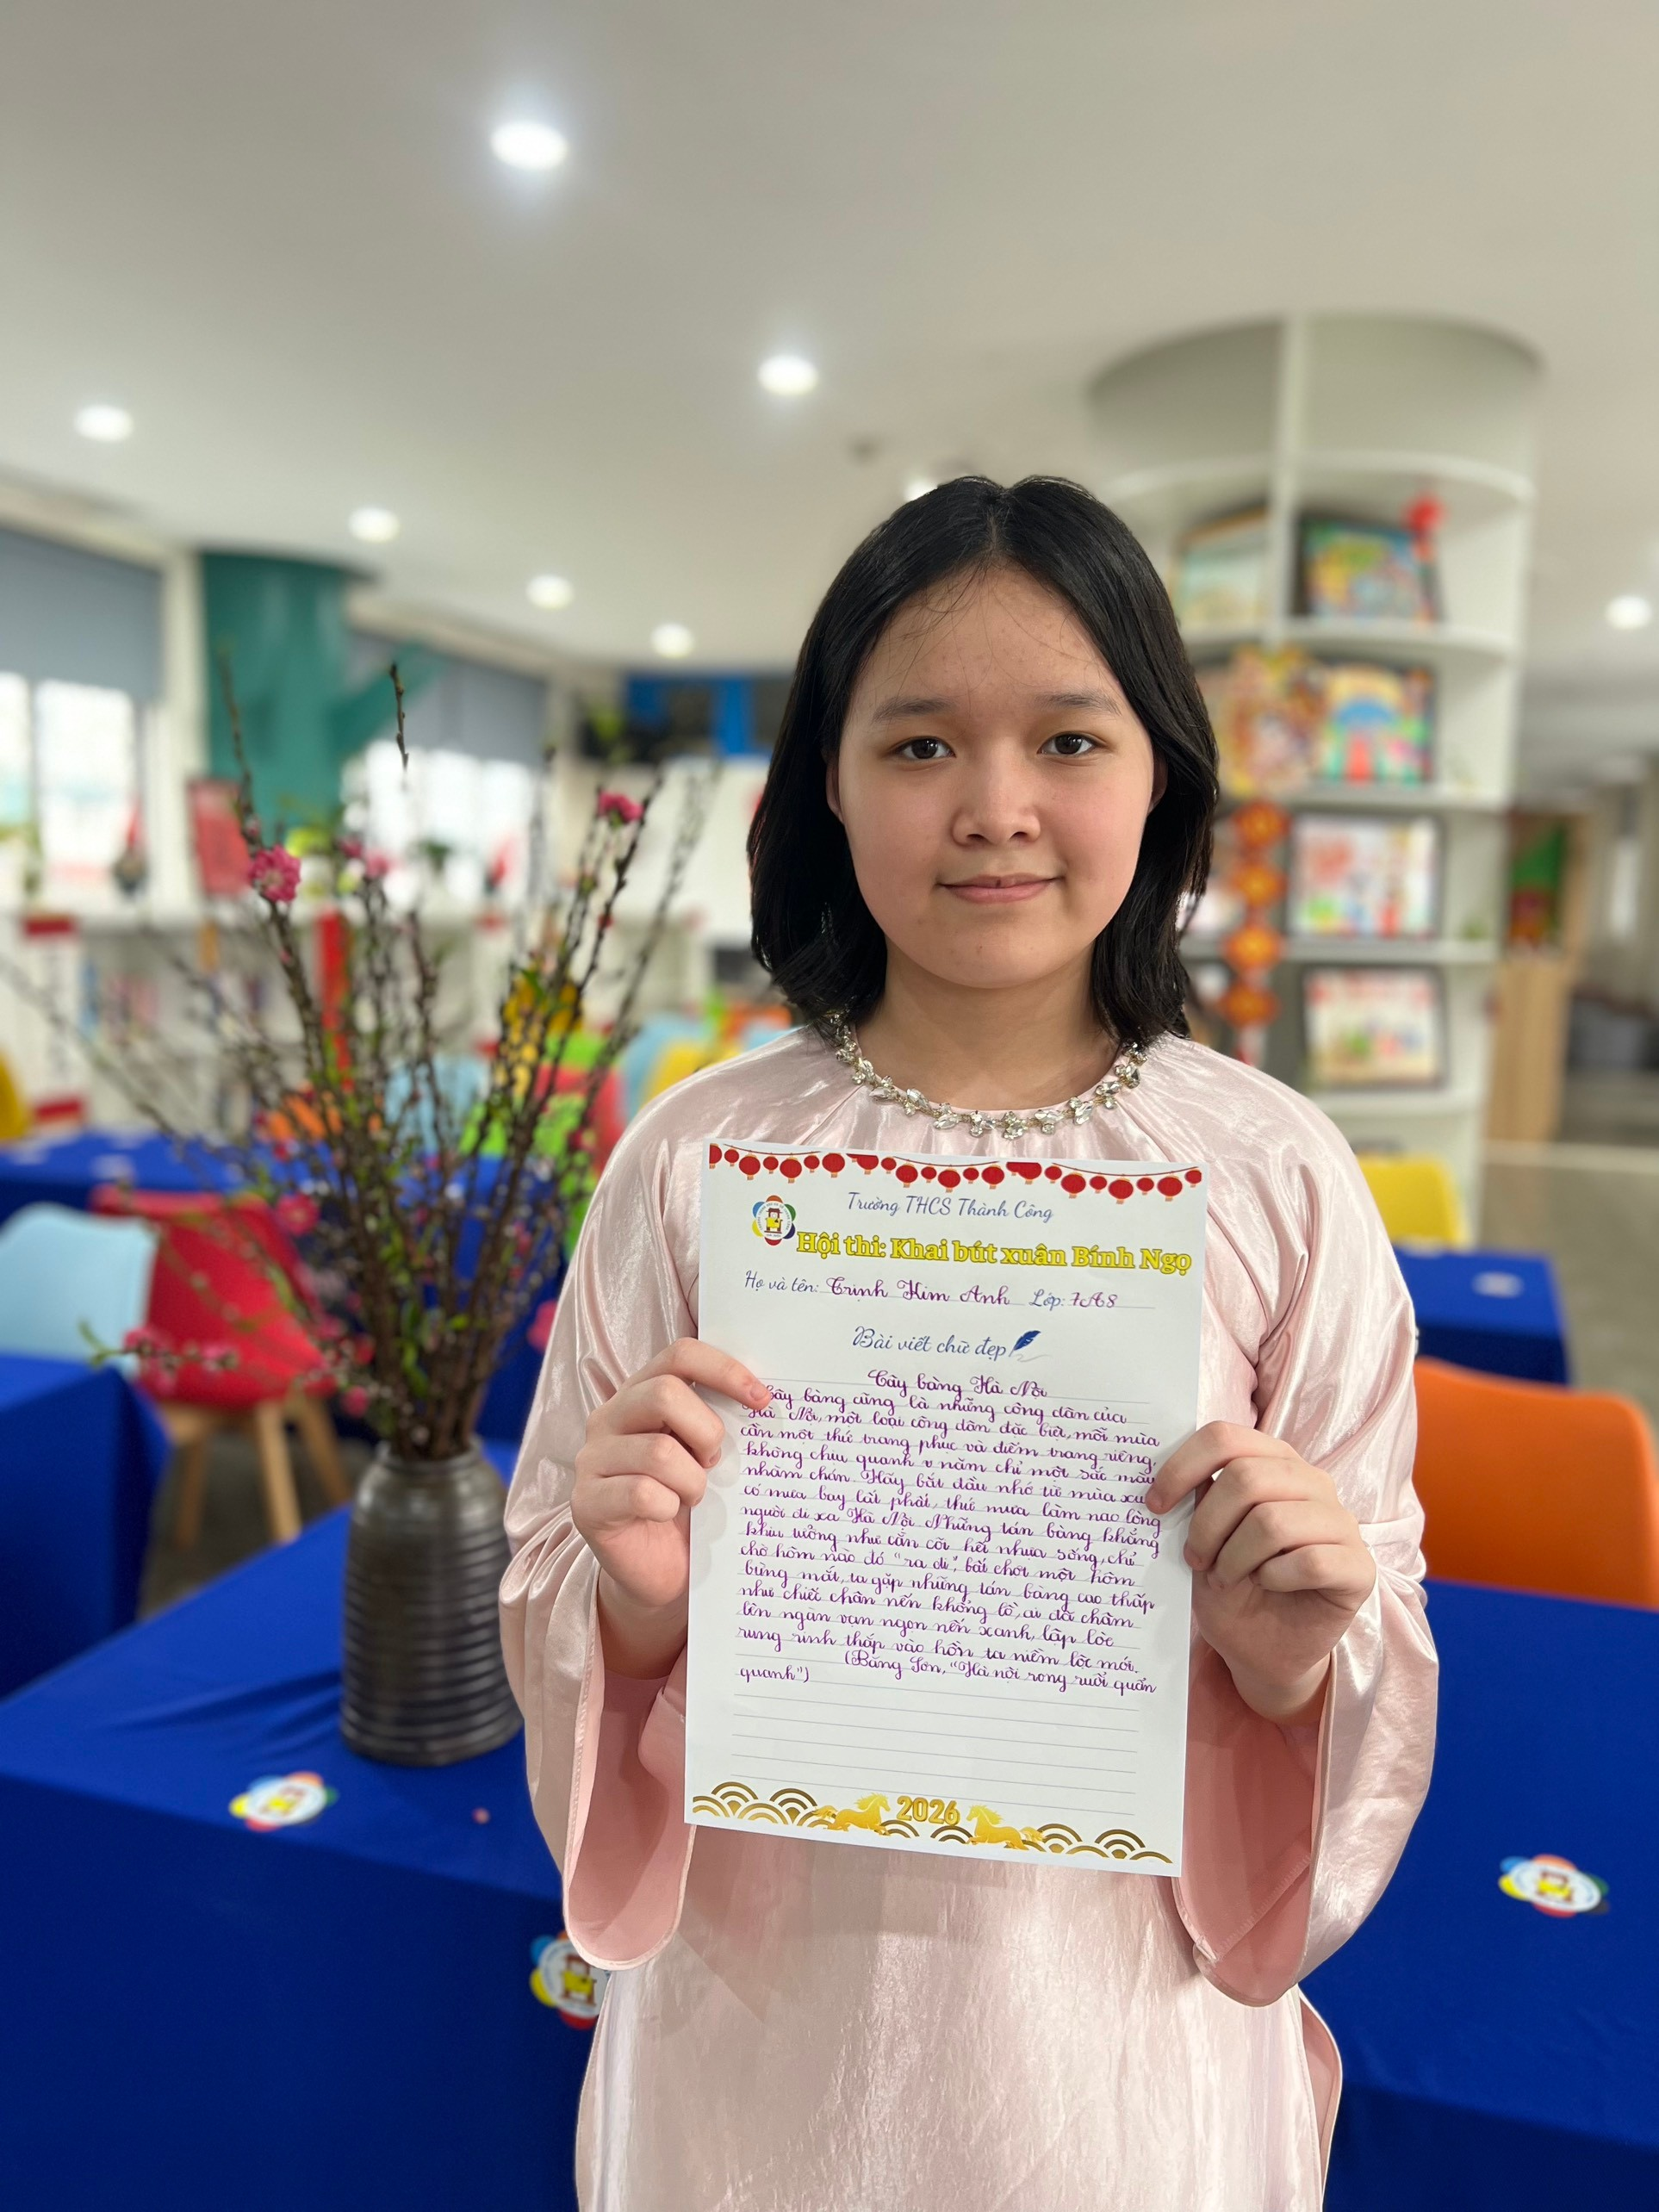 Trường THCS Thành Công
Hội thi: Khai bút xuân Bính Ngọ
Họ và tên: Trịnh Kim Anh Lớp: 7A8
Bài viết chữ đẹp
Cây bàng Hà Nội
Cây bàng cũng là những công dân của
Hà Nội, một loại công dân đặc biệt, mỗi mùa
cần một thứ trang phục và điểm trang riêng,
không chịu quanh năm chỉ một sắc màu
nhàm chán. Hãy bắt đầu nhớ từ mùa xu
có mưa bay lất phất, thứ mưa làm nao lòng
người đi xa Hà Nội. Những tán bàng khẳng
khiu tưởng như cằn cỗi hết nhựa sống, chỉ
chờ hôm nào đó "ra đi", bất chợt một hôm
bừng mắt, ta gặp những tán bàng cao thấp
như chiếc chân nến khổng lồ, ai đã châm
lên ngàn vạn ngọn nến xanh, lập lòe
rung rinh thắp vào hồn ta niềm lộc mới.
(Băng Sơn, "Hà nội rong ruổi quẩn
quanh")
2026